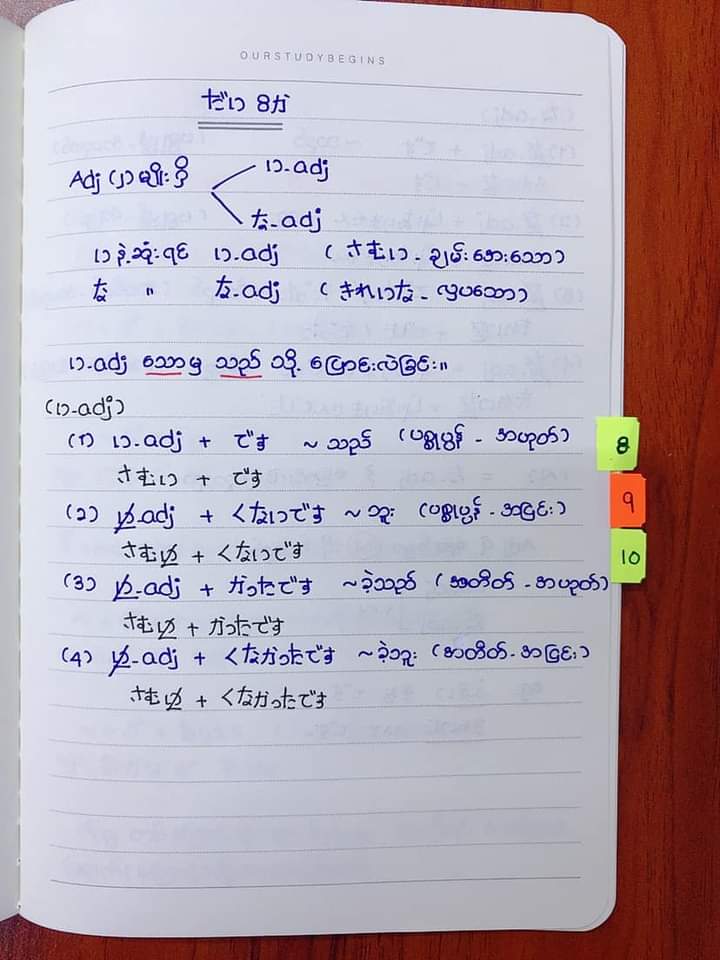 OURSTUDYBEGINS
だい 8 か
Adj (၂) မျိုးရှိ
い-adj
な-adj
いနဲ့ဆုံးရင် い-adj (さむい - ချမ်းအေးသော)
な " な-adj (きれいな - လှပသော)
い-adj သောမှ သည် သို့ ပြောင်းလဲခြင်း။
(い-adj)
(1) い-adj + です ~ သည် (ပစ္စုပ္ပန် - အဟုတ်)
さむい + です
(2) い-adj + くないです ~ ဘူး (ပစ္စုပ္ပန် - အငြင်း)
さむい + くないです
(3) い-adj + かったです ~ ခဲ့သည် (အတိတ် - အဟုတ်)
さむい + かったです
(4) い-adj + くなかったです ~ ခဲ့ဘူး (အတိတ် - အငြင်း)
さむい + くなかったです
8
9
10